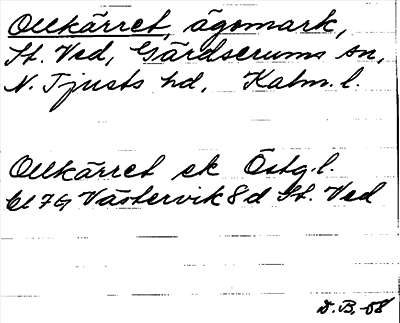 Ollkärret, ägomark,
St. Ved, Gärdserums sn,
N. Tjusts hd, Kalm. l.
Ollkärret ek Östg. l.
bl 7G Västervik 8 d St. Ved
D. B. -58